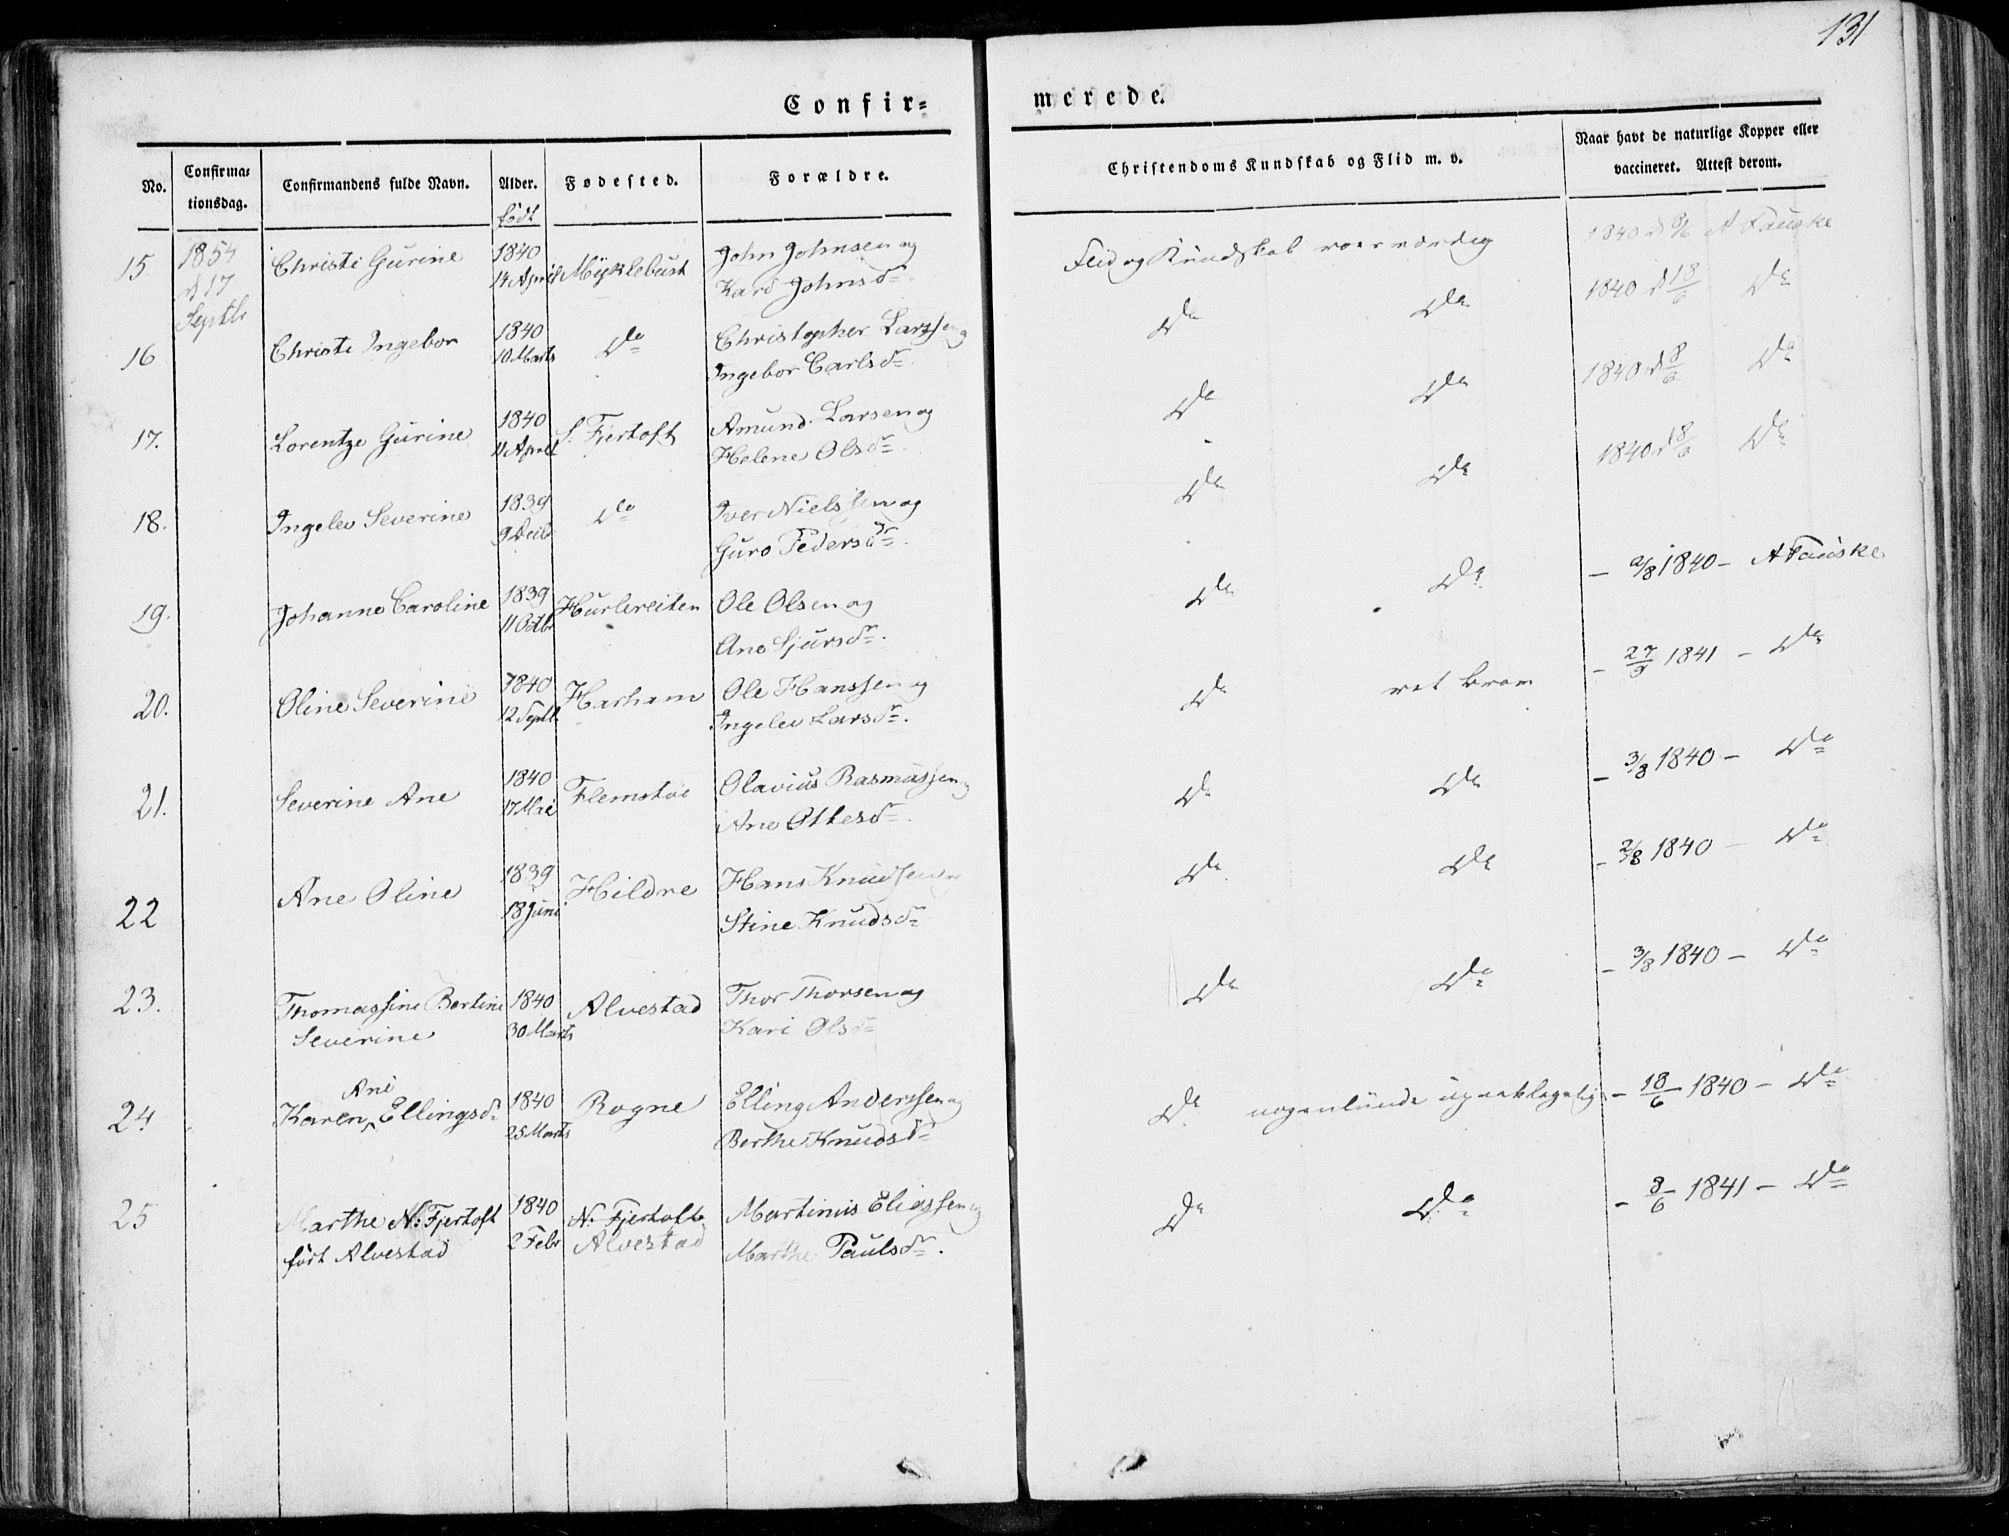 131
Confir=
merede.
No.
Confirma=
tionsdag.
Confirmandens fulde Navn.
Alder.
født
Fødested.
Forældre.
Christendoms Kundskab og Flid m. v.
Naar havt de naturlige Kopper eller
vaccineret. Attest derom.
15
1854
d 17
Septbr
Christi Gurine
1840
14 April
Myklebust
John Johnsen og
Kard Johnsdr
Flid og Kundskab
1840 d 8/6 A Fauske
16
Christi Ingebor
1840
10 Marts
do
Christopher Larssen og
Ingebor Carlsdr
do do
1840 d 18/6 do
17.
Lorentze Gurine
1840
11 April
S. Fjertoft
Amund Larsen og
Helene Olsdr
do do
1840 d 8/6 do
18.
Ingelev Severine
1839
9 Decb
do
Iver Nielssen og
Guro Pedersdr
do do
1840 d 8/6 do
19.
Johanne Caroline
1839
11 Octbr
Hurlereiten
Ole Olsen og
Ane Sjursdr.
do do
- 2/8 1840 - A Fauske
20.
Oline Severine
1840
12 Septb.
Harham
Ole Hanssen og
Ingelev Larsdr.
do ret
- 27/9 1841 - do
21.
Severine Ane
1840
17 Mai
Flemstøe
Olavius Rasmussen og
Ane Ottesdr
do do
- 3/8 1840 - do
22
Ane Oline
1839
18 Juni
Hildre
Hans Knudsen og
Stine Knudsdr
do do
- 2/8 1840 - do
23.
Thomassine Bertine
Severine
1840
30 Marts
Alvestad
Thor Thorsen og
Kari Olsdr
do do
- 3/8 1840 - do
24
Ane
Karen, Ellingsdr
1840
25 Marts
Rogne
Elling Anderssen og
Berthe Knudsdr
do nogenlunde upaaklagelig
- 18/6 1840 - do
25
Marthe N. Fjertoft
født Alvestad
1840
2 Febr
N. Fjertoft
Alvestad
Martinus Eliassen og
Marthe Paulsdr.
do do
- 8/6 1841 - do